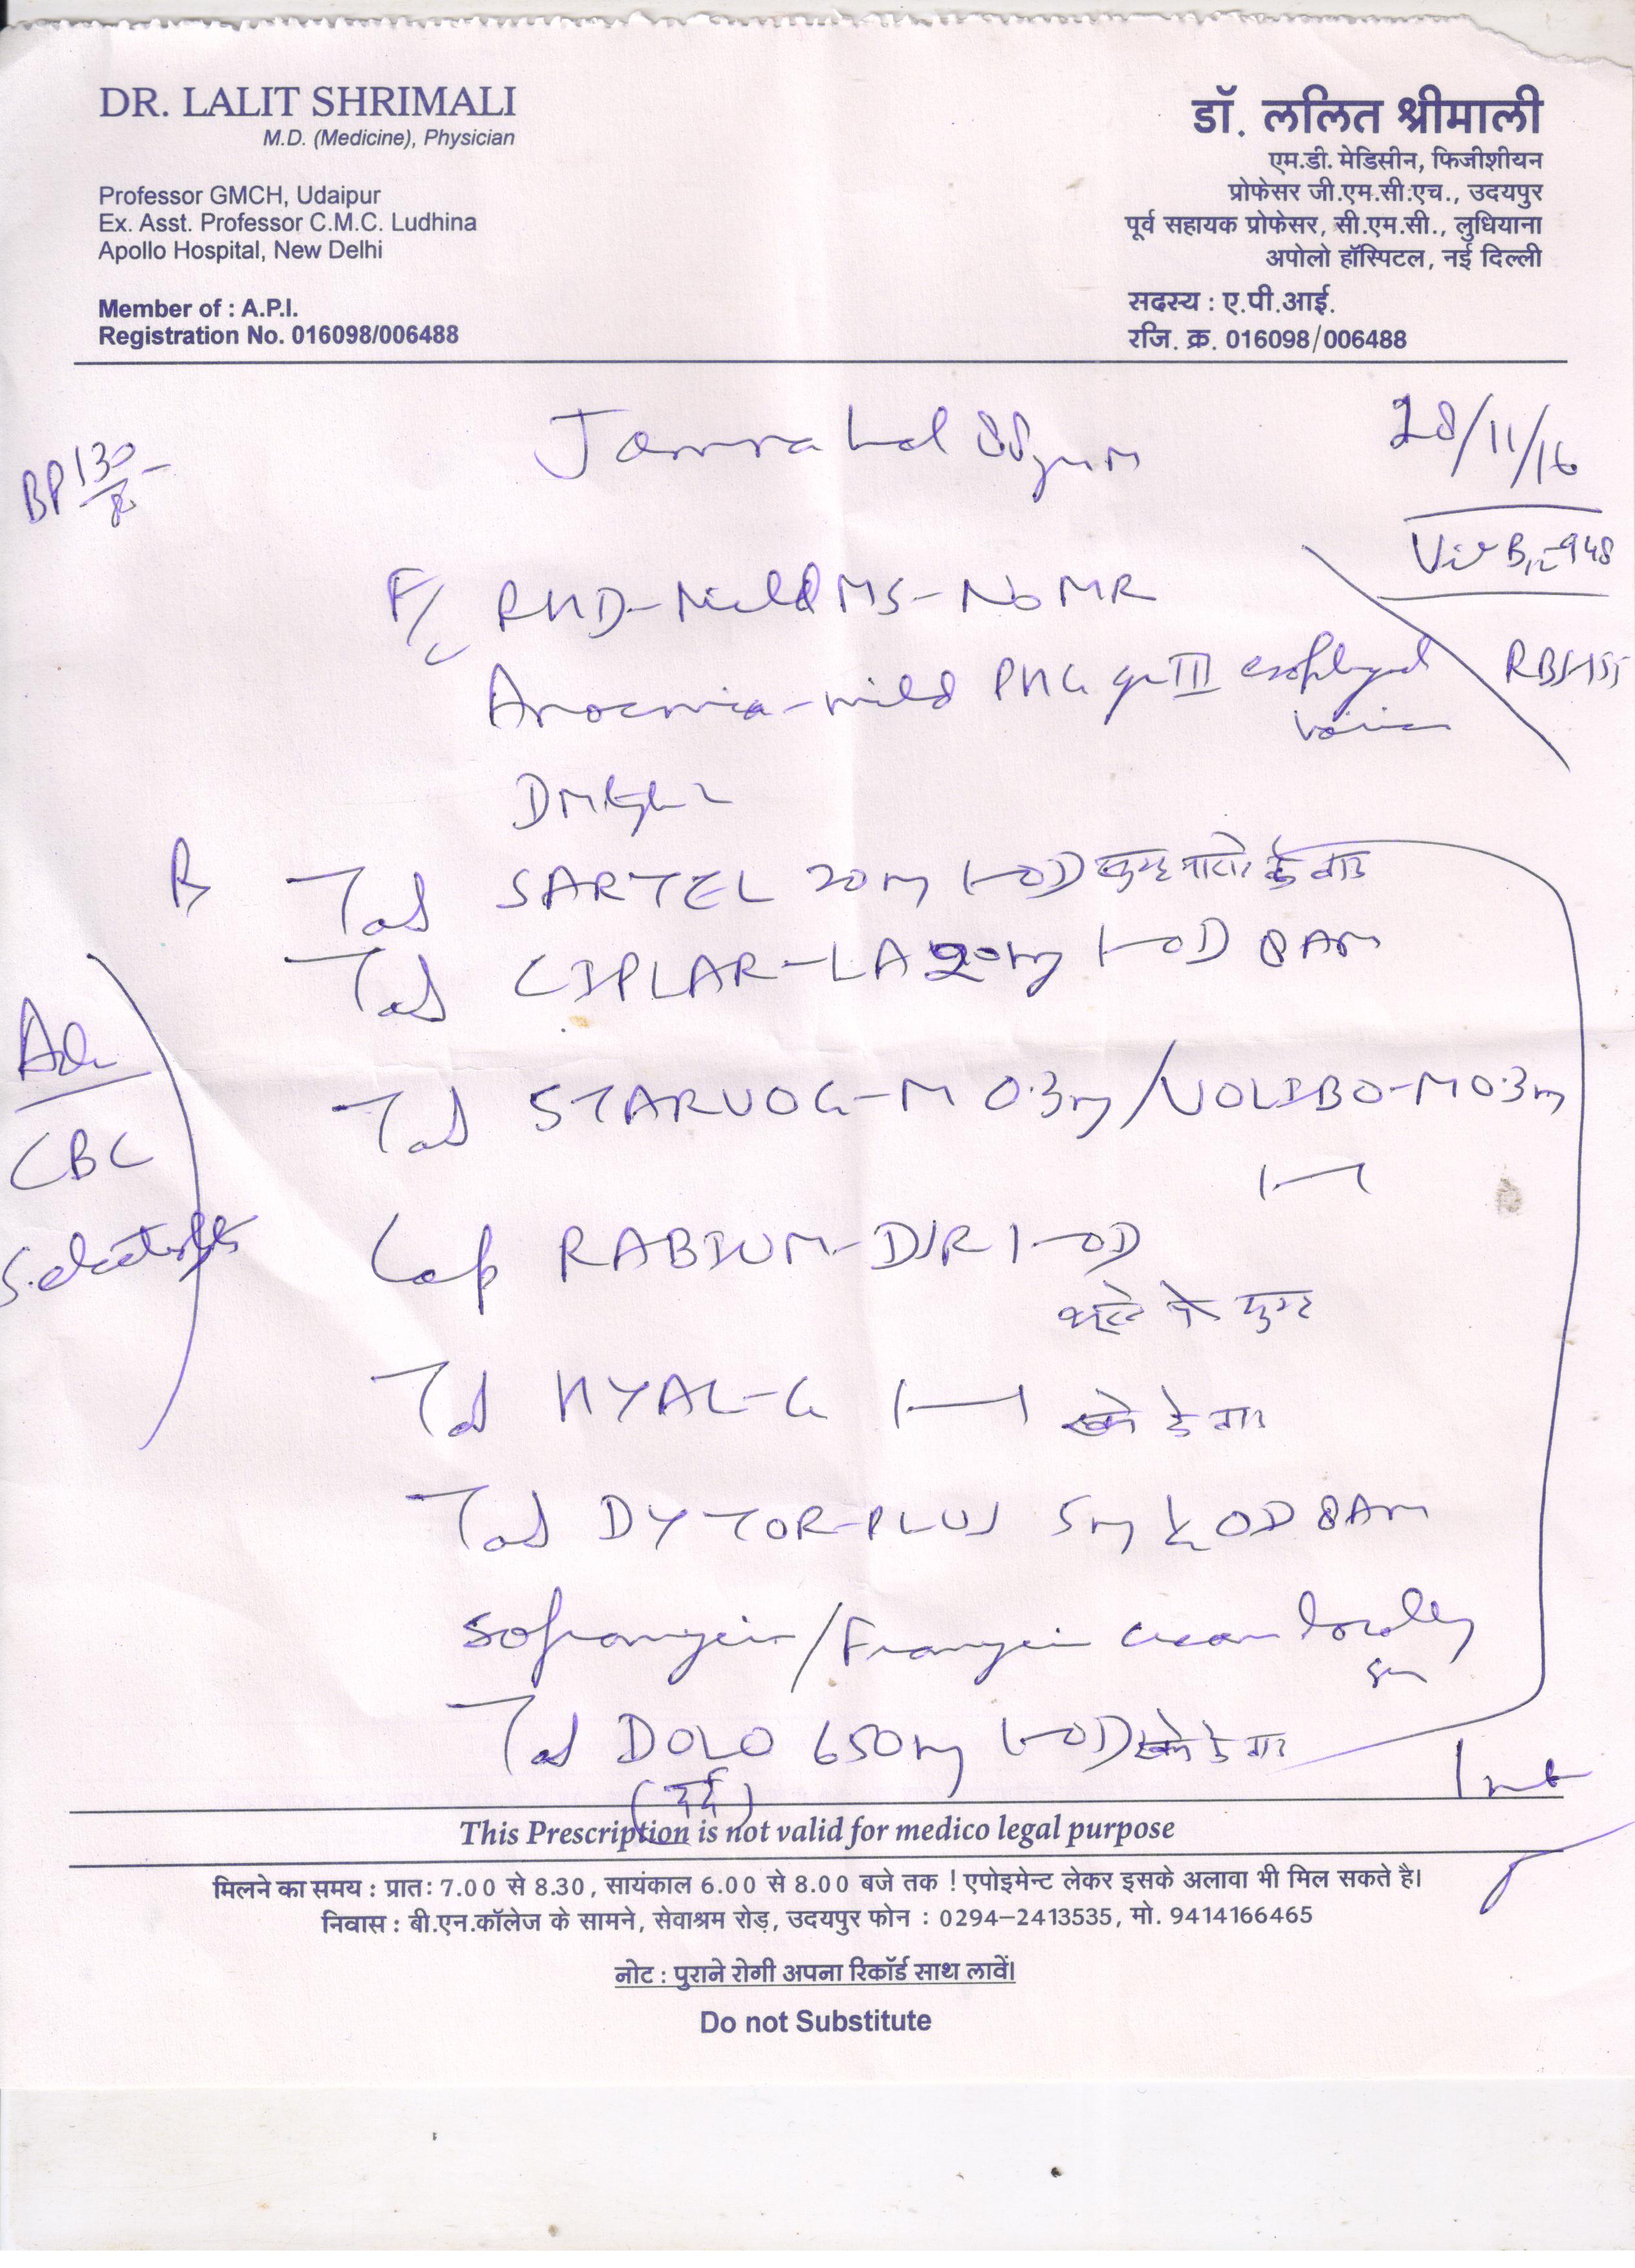 DR. LALIT SHRIMALI
M.D. (Medicine), Physician
Professor GMCH, Udaipur
Ex. Asst. Professor C.M.C. Ludhina
Apollo Hospital, New Delhi
Member of : A.P.I.
Registration No. 016098/006488
डॉ. ललित श्रीमाली
एम.डी. मेडिसीन, फिजीशीयन
प्रोफेसर जी.एम.सी.एच., उदयपुर
पूर्व सहायक प्रोफेसर, सी.एम.सी., लुधियाना
अपोलो हॉस्पिटल, नई दिल्ली
सदस्य : ए.पी.आई.
रजि. क्र. 016098/006488
28/11/16
BP 130/
Vit B12-948
RBS-155
F/c RHD-Mild MS-No MR
Anoemia-mild PHG gr III esophageal
varices
Rx Tab SARTEL 20mg 1-OD सुबह नाश्ते के बाद
Tab CIPLAR-LA 20mg 1-OD 8AM
Adv
CBC
S. electrolytes
Tab STARVOG-M 0.3mg/VOLIBO-M 0.3mg
1-1
Cap RABIUM-DSR 1-OD
भूखे पेट सुबह
Tab HYAL-G 1-1 खाने के बाद
Tab DYTOR-PLUS 5mg ½ OD 8AM
Soframycin/Framycin cream locally
Tab DOLO 650mg 1-OD खाने के बाद
(दर्द)
This Prescription is not valid for medico legal purpose
मिलने का समय : प्रातः 7.00 से 8.30, सायंकाल 6.00 से 8.00 बजे तक ! एपोइमेन्ट लेकर इसके अलावा भी मिल सकते है।
निवास : बी.एन.कॉलेज के सामने, सेवाश्रम रोड़, उदयपुर फोन : 0294-2413535, मो. 9414166465
नोट : पुराने रोगी अपना रिकॉर्ड साथ लावें।
Do not Substitute